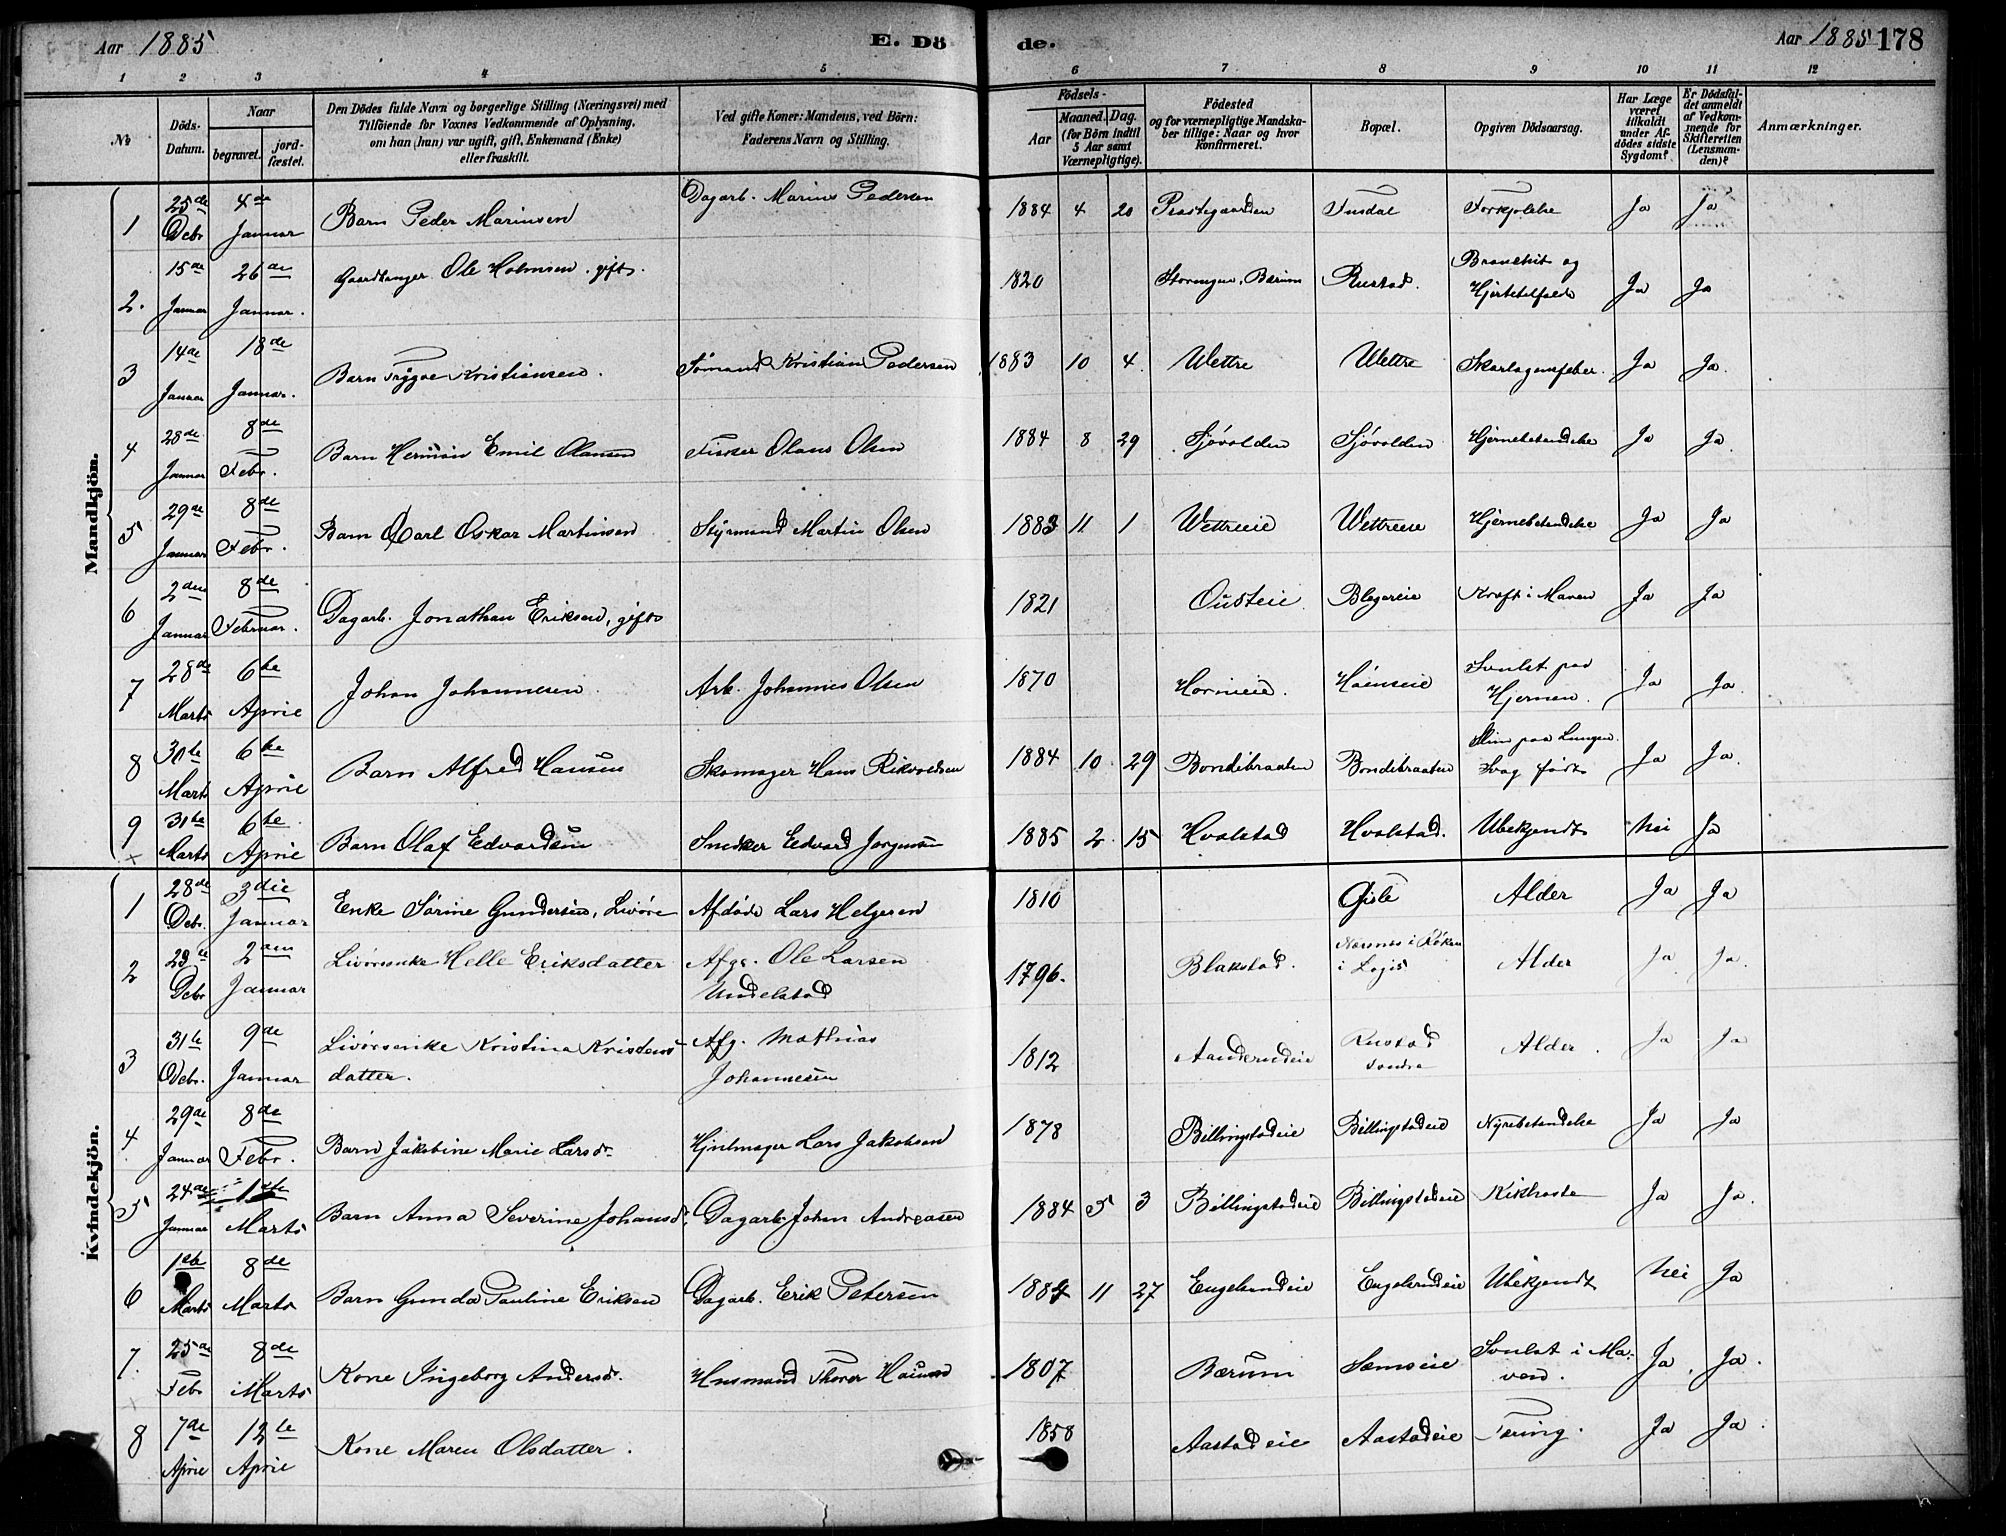 Aar 1885 E. Dö de. Aar 1885 178
1 2 3 4 5 6 7 8 9 10 11 12
No Döds-Datum. Naar begravet. jordfæstet. Den Dödes fulde Navn og borgerlige Stilling (Næringsvei) med Tilföiende for Voxnes Vedkommende af Oplysning, om han (hun) var ugift, gift, Enkemand (Enke) eller fraskilt. Ved gifte Koner: Mandens, ved Börn: Faderens Navn og Stilling. Födsels- Aar Maaned. Dag. (for Börn indtil 5 Aar samt Værnepligtige). Födested og for værnepligtige Mandskaber tillige: Naar og hvor konfirmeret. Bopæl. Opgiven Dödsaarsag. Har Læge været tilkaldt under Afdödes sidste Sygdom? Er Dödsfaldet anmeldt af Vedkommende for Skifteretten (Lensmanden)? Anmærkninger.
Mandkjön.
1 25de Debr 4de Januar Barn Peder Marinsen Dagarb. Marius Pedersen 1884 4 20 Præstegaarden Tusdal Forkjølelse Ja Ja
2. 15de Januar 26de Januar. Gaardbruger Ole Holmsen. gift. 1820 Bærum Rustad. Bronchit og Hjertetilfælde Ja Ja
3 14de Januar 18de Januar. Barn Trygve Kristiansen. Sømand Kristian Pedersen 1883 10 4. Wettre Wettre Skarlagensfeber. Ja Ja.
4 28de Januar 8de Febr. Barn Herman Emil Olausen Fisker Olaus Olsen 1884 8 29 Sjøvolden Sjøvolden Hjernebetændelse Ja Ja.
5 29de Januar 8de Febr. Barn Carl Oskar Martinsen Styrmand Martin Olsen 1883 11 1 Wettreeie Wettreeie Hjernebetændelse Ja Ja
6 2den Januar 8de Februar. Dagarb. Jonathan Eriksen, gift 1821 Ousteie Blegereie Kræft i Maven Ja Ja
7 28de Marts 6te April Johan Johannesen Arb. Johannes Olsen 1870 Hornieie. Svulst paa Hjernen. Ja Ja.
8 30te Marts 6te April Barn Alfred Hansen Skomager Hans Rikvoldsen 1884 10 29 Bondibraaten Bondibraaten Slim paa Lungen. Svag født Ja Ja
9 31te Marts 6te April Barn Olaf Edvardsen Snedker Edvard Jørgensen 1885 2 15 Hvalstad Hvalstad. Ubekjendt Nei Ja
Kvindekjön.
1 28de Debr. 3die Januar Enke Sørine Gundersen, Livøre Afdøde Lars Helgesen 1810 Gisle Alder Ja Ja
2 29de Debr 2den Januar Livøresenke Helle Eriksdatter Afg. Ole Larsen Undelstad 1796. Blakstad. Nærsnes i Røken i Logis Alder Ja Ja.
3 31te Debr. 9de Januar Livørsenke Kristina Kristensdatter. Afg. Mathias Johannesen 1812 Aanderudeie Rustad søndre Alder. Ja Ja
4 29de Januar 8de Febr. Barn Jakobine Marie Larsdr. Hjulmager Lars Jakobsen 1878 Billingstadeie Billingstadeie Nyrebetændelse Ja Ja
5 24de Januar 1ste Marts Barn Anna Severine Johansdr. Dagarb. Johan Andreasen 1884 5 3 Billingstadeie Billingstadeie Kikhoste Ja Ja.
6 1ste Marts 8de Marts Barn Gunda Pauline Eriksen Dagarb. Erik Petersen 1884 11 27 Engelsrudeie Engelsrudeie Ubekjendt Nei Ja
7. 25de Febr 8de Marts Kone Ingeborg Andersdr. Husmand Thorer Hansen 1807 Bærum Semseie Svulst i Maven. Ja. Ja.
8 7de April 12te April Kone Maren Olsdatter. 1858 Aastadeie Aastadeie Tæring. Ja Ja.